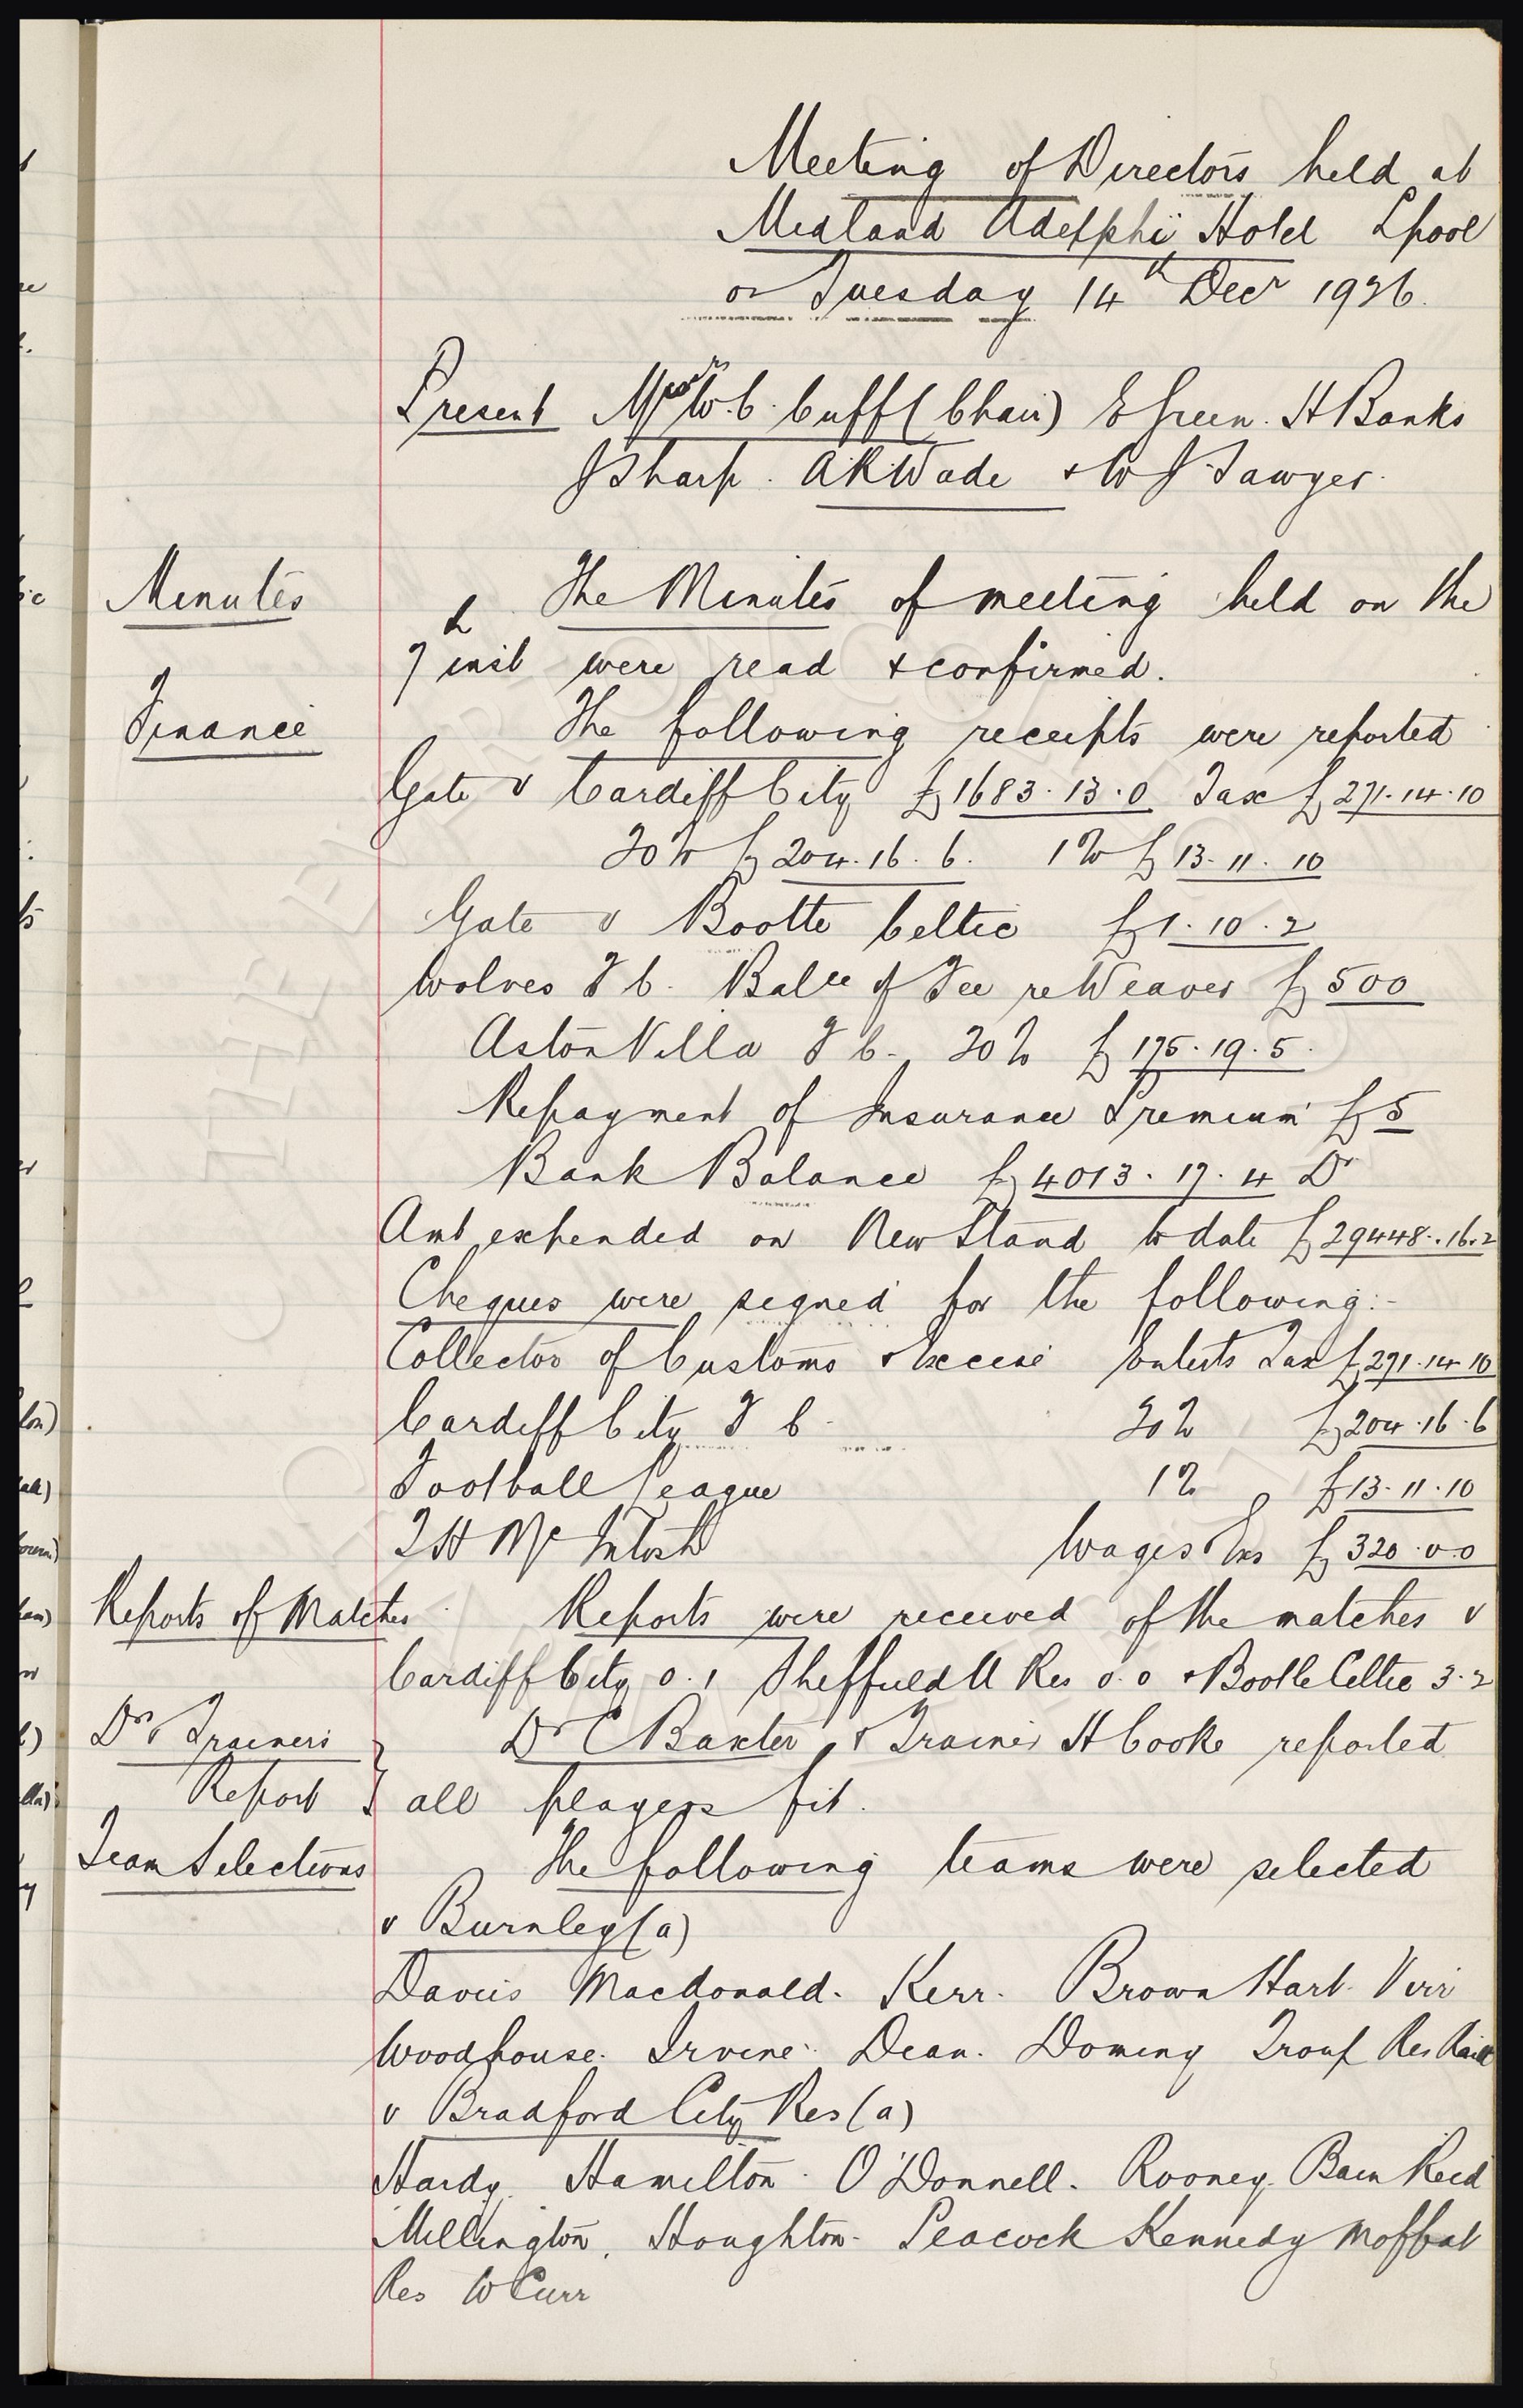 Meeting of Directors held at
Midland Adelphi Hotel Lpool
on Tuesday 14th Decr 1926.
Present Messrs W.C. Cuff (Chair) E Green. H Banks
J Sharp. A R Wade & W J Sawyer.
Minutes
The Minutes of meeting held on the
7th inst were read & confirmed.
Finance
The following receipts were reported
Gate v Cardiff City £1683.13.0 Tax £271.14.10
20% £204.16.6. 1% £13.11.10
Gate v Bootle Celtic £1.10.2
Wolves F C. Balce of Fee re Weaver £500
Aston Villa F C. 20% £175.19.5.
Repayment of Insurance Premium £5
Bank Balance £4013.17.4 Dr
Amt expended on New Stand to date £29448.16.2
Cheques were signed for the following:-
Collector of Customs & Excise Enterts Tax £271.14.10
Cardiff City F C. 20% £204.16.6
Football League 1% £13.11.10
T H McIntosh Wages Exs £320.0.0
Reports of Matches
Reports were received of the matches v
Cardiff City 0.1 Sheffield U Res 0.0 & Bootle Celtic 3.2
Dr & Trainers
Report
Dr C Baxter & Trainer H Cooke reported
all players fit.
Team Selections
The following teams were selected
v Burnley (a)
Davies Macdonald. Kerr. Brown Hart. Virr
Woodhouse. Irvine. Dean. Dominy Troup Res Raitt
v Bradford City Res (a)
Hardy. Hamilton. O'Donnell. Rooney. Bain Reid
Millington. Houghton. Peacock Kennedy Moffat
Res W Curr